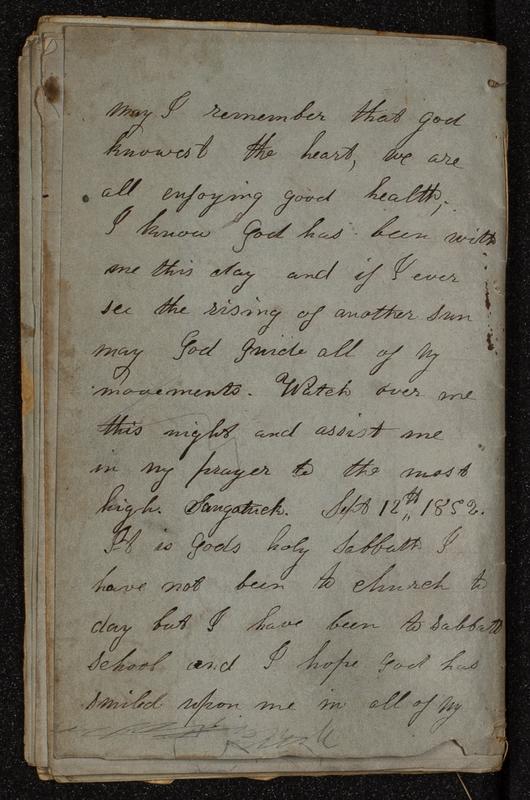 may I remember that god
knowest the heart, we are
all enjoying good health,
I know God has been with
me this day and if I ever
see the rising of another sun
may God guide all of my
movements. Watch over me
this night and assist me
in my prayer to the most
high. Saugatuck. Sept 12th, 1852.
It is Gods holy Sabbath I
have not been to church to
day but I have been to Sabbath
school and I hope God has
smiled upon me in all of my